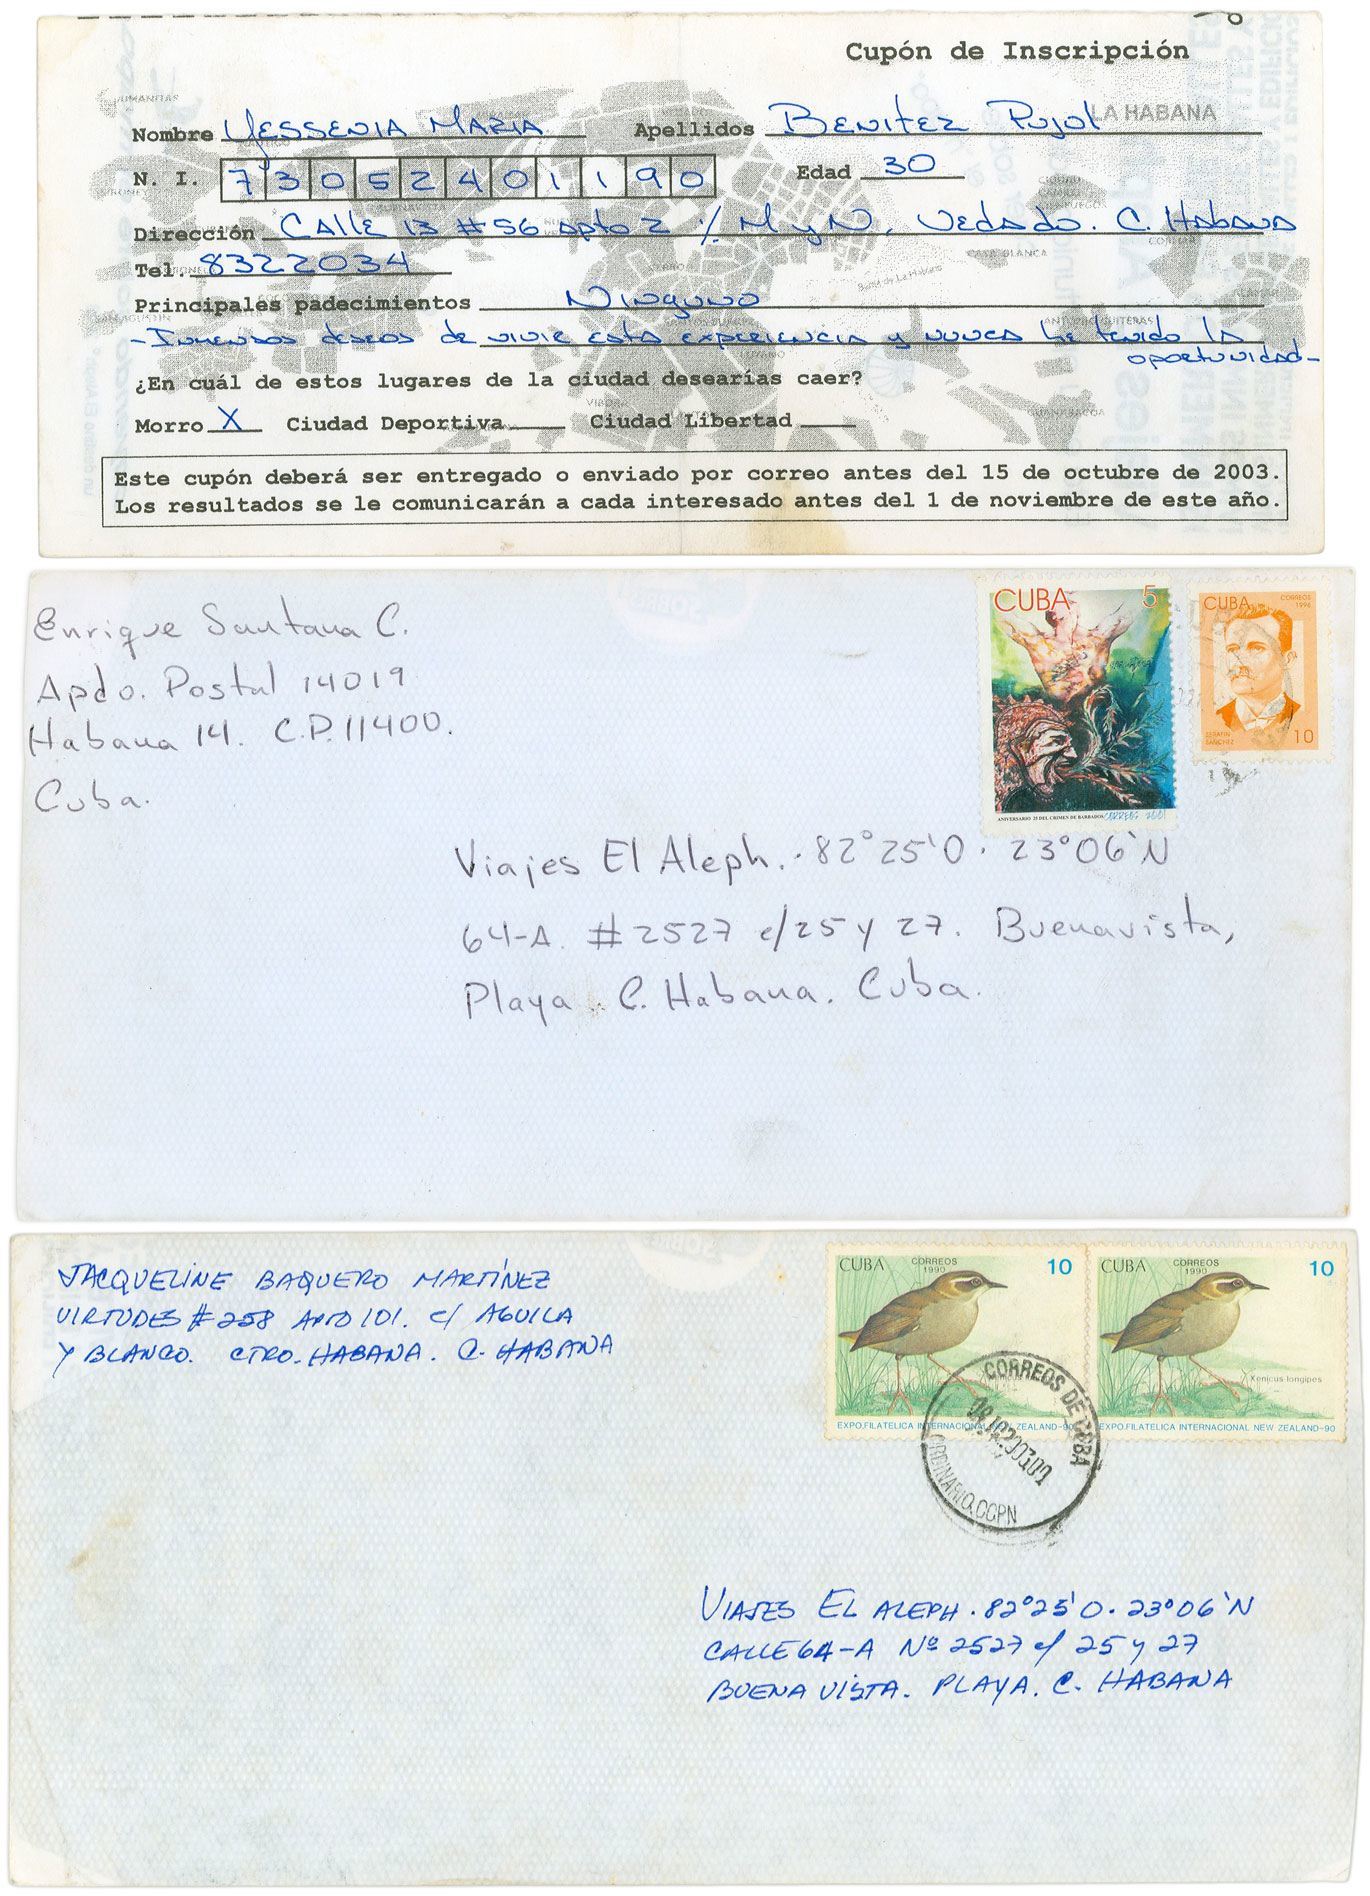 Cupón de Inscripción
LA HABANA
Nombre Yessenia Maria Apellidos Benitez Pujol
N. I. 73052401190 Edad 30
Dirección Calle 13 #56 apto 2 ./. M y N, Vedado. C. Habana
Tel. 8322034
Principales padecimientos Ninguno
- Inmensos deseos de vivir esta experiencia y nunca he tenido la
oportunidad -
¿En cuál de estos lugares de la ciudad desearías caer?
Morro X Ciudad Deportiva Ciudad Libertad
Este cupón deberá ser entregado o enviado por correo antes del 15 de octubre de 2003.
Los resultados se le comunicarán a cada interesado antes del 1 de noviembre de este año.
Enrique Santana C.
Apdo. Postal 14019
Habana 14. C.P. 11400.
Cuba.
CUBA 5
ANIVERSARIO 25 DEL CRIMEN DE BARBADOS CORREOS 2001
CUBA CORREOS
1996
SERAFIN
SANCHEZ 10
Viajes El Aleph. · 82°25'O · 23°06'N
64-A. #2527 e/25 y 27. Buenavista,
Playa. C. Habana. Cuba.
JACQUELINE BAQUERO MARTÍNEZ
VIRTUDES #258 APTO 101. c/ AGUILA
Y BLANCO. CTRO. HABANA. C. HABANA
CUBA CORREOS 10
1990
EXPO.FILATELICA INTERNACIONAL NEW ZEALAND-90
CUBA CORREOS 10
1990
Xenicus longipes
EXPO.FILATELICA INTERNACIONAL NEW ZEALAND-90
CORREOS DE CUBA
ORDINARIO.CCPN
VIAJES EL ALEPH · 82°25'O · 23°06'N
CALLE 64-A Nº 2527 e/ 25 y 27
BUENA VISTA. PLAYA. C. HABANA